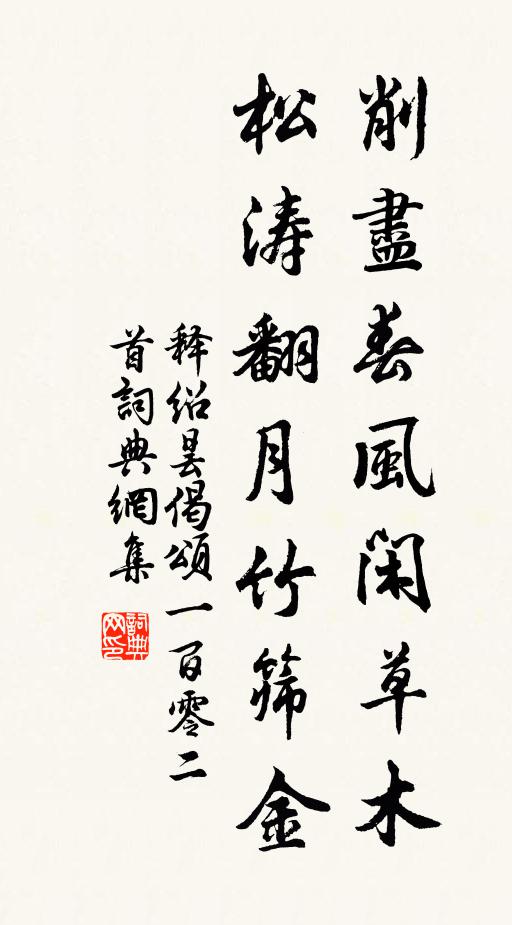 削盡春風閑草木
松濤翻月竹篩金
释紹曇偈頌一百零二
首詞典網集
詞典
网印